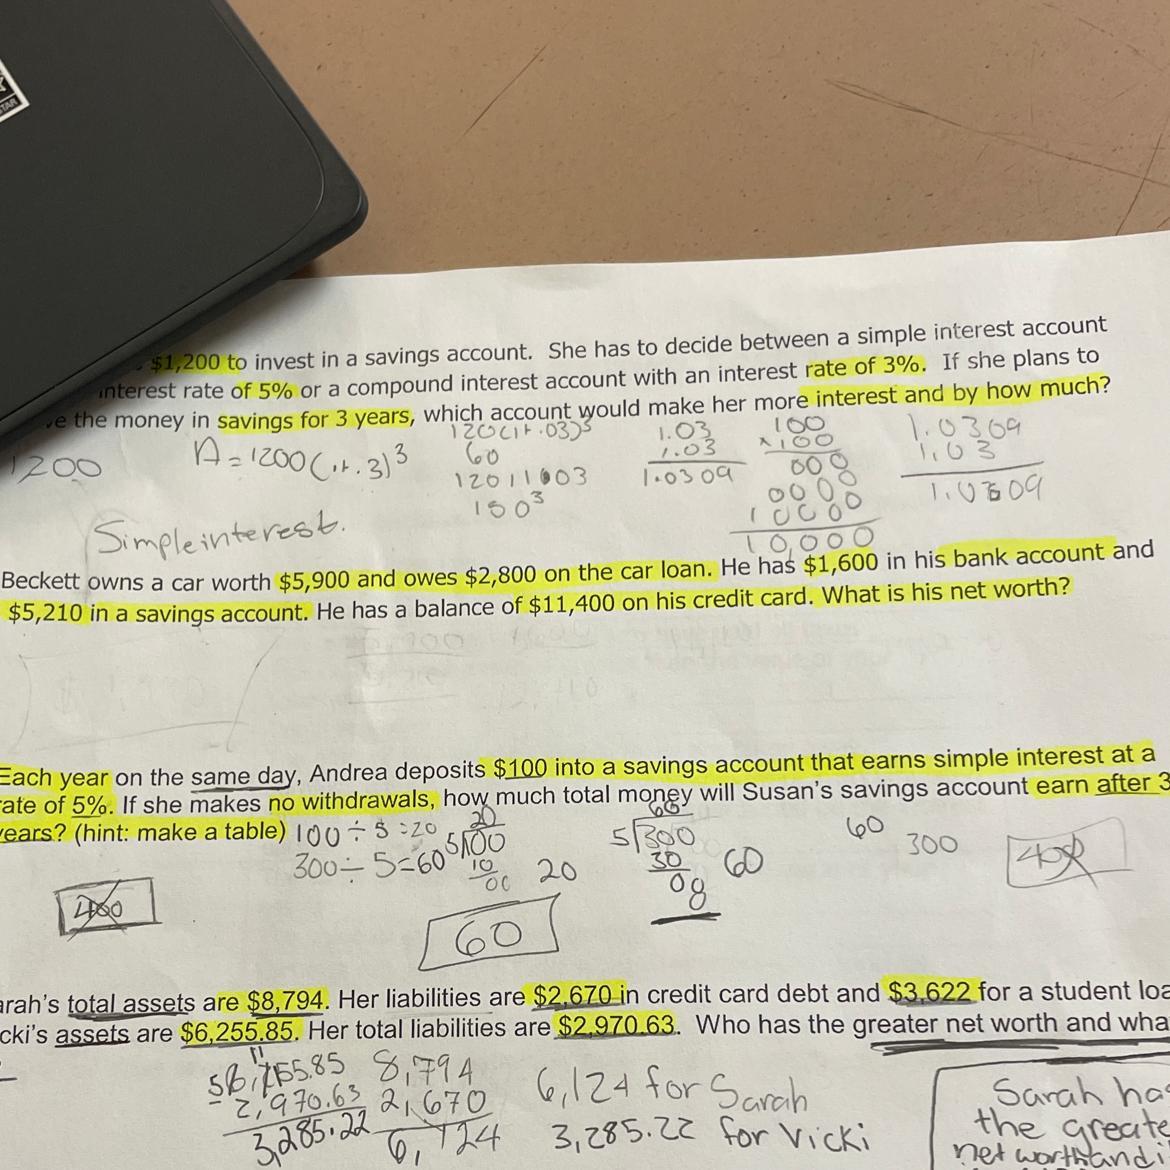 STAR
$1,200 to invest in a savings account. She has to decide between a simple interest account
interest rate of 5% or a compound interest account with an interest rate of 3%. If she plans to
the money in savings for 3 years, which account would make her more interest and by how much?
1200 A = 1200(1+.3)³ 120(1+.03)³ 1.03 100 1.0309
60 1.03 ×100 1.03
12011003 1.0309 000 1.0309
150³ 0000
10000
Simple interest. 10,000
Beckett owns a car worth $5,900 and owes $2,800 on the car loan. He has $1,600 in his bank account and
$5,210 in a savings account. He has a balance of $11,400 on his credit card. What is his net worth?
Each year on the same day, Andrea deposits $100 into a savings account that earns simple interest at a
rate of 5%. If she makes no withdrawals, how much total money will Susan's savings account earn after 3
years? (hint: make a table) 100 ÷ 5 = 20 20 60 60
300 ÷ 5 = 60 5)100 5)300 300
10 20 30 60
00 00
400 60
arah's total assets are $8,794. Her liabilities are $2,670 in credit card debt and $3,622 for a student loa
cki's assets are $6,255.85. Her total liabilities are $2,970.63. Who has the greater net worth and wha
8,794 6,124 for Sarah Sarah has
- 2,970.63 2,670 the greate
3,285.22 6,124 3,285.22 for Vicki net worth and i